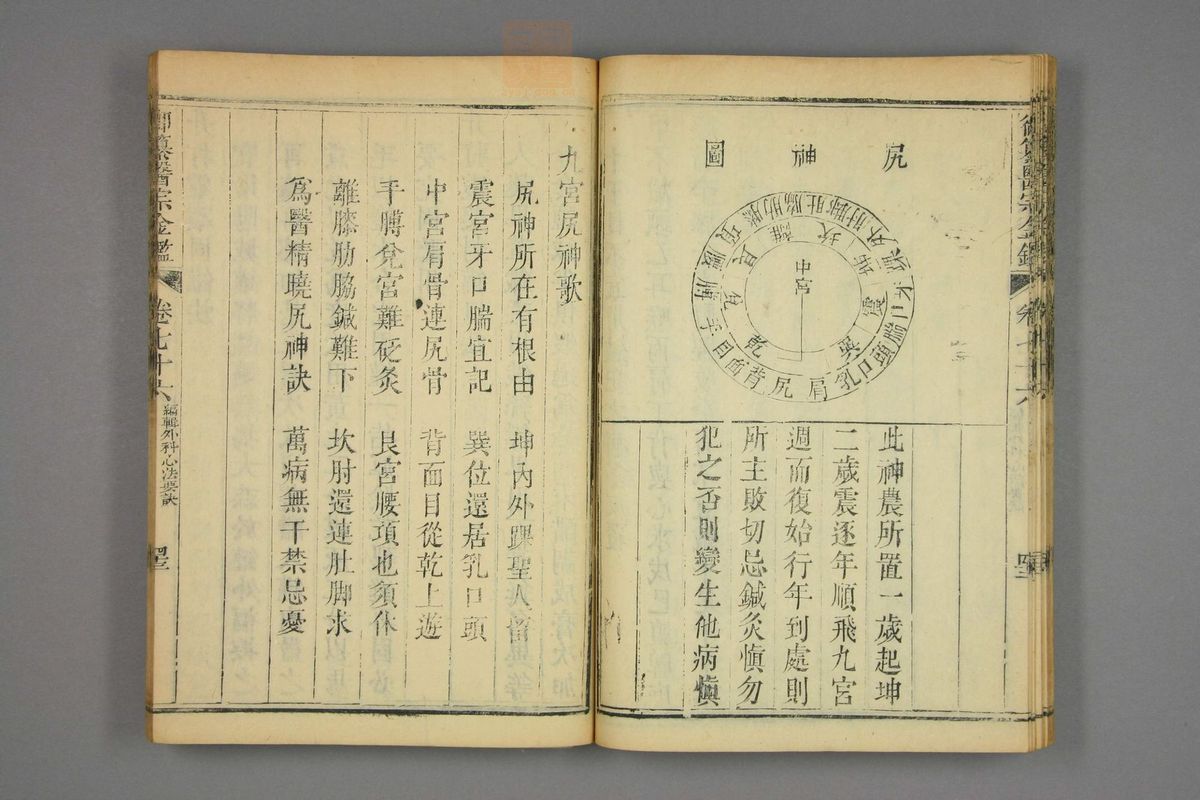 御纂醫宗金鑑 卷七十六
尻神圖
中宮
坎
艮
震
巽
離
坤
兌
乾
肩尻背面目手膊腰項
膝脇肋肘脚肚
外踝
牙口腨
頭口乳
此神農所置一歲起坤
二歲震逐年順飛九宮
週而復始行年到處則
所主敗切忌鍼灸慎勿
犯之否則變生他病慎
九宮尻神歌
尻神所在有根由 坤內外踝聖人留
震宮牙口腨宜記 巽位還居乳口頭
中宮肩骨連尻骨 背面目從乾上遊
手膊兌宮難砭灸 艮宮腰項也須休
離膝肋脇鍼難下 坎肘還連肚脚求
為醫精曉尻神訣 萬病無干禁忌憂
御纂醫宗金鑑 卷七十六 編輯外科心法要訣